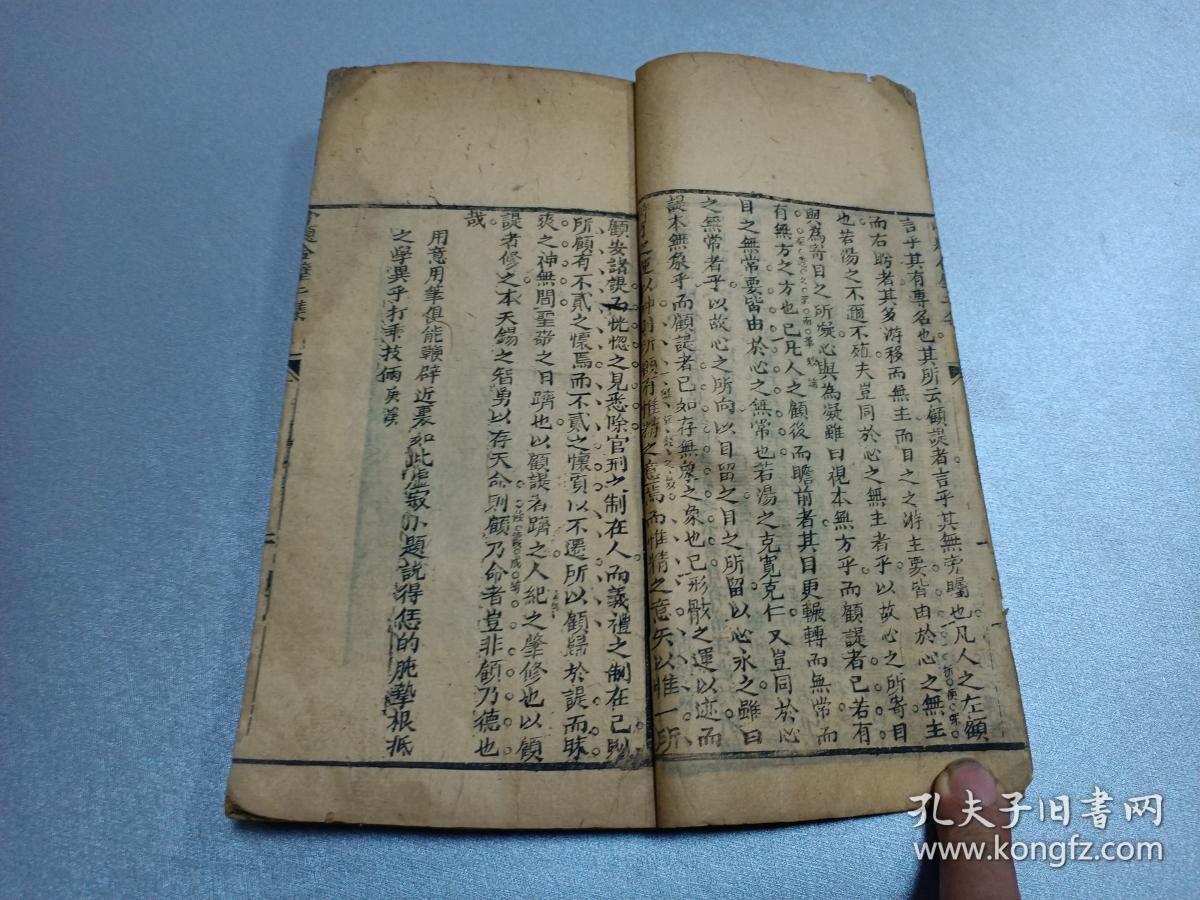 言乎其有專名也其所云顧諟者言乎其無旁矚也凡人之左顧
而右盻者其多游移而無主而目之之游主要皆由於心之無主
也若湯之不邇不殖夫豈同於心之無主者乎以故心之所寄目
與為寄目之所凝心與為凝雖曰視本無方乎而顧諟者已若有
有無方之方也已凡人之顧後而瞻前者其目更輾轉而無常而
目之無常要皆由於心之無常也若湯之克寬克仁又豈同於心
之無常者乎以故心之所向以目留之目之所留以心永之雖曰
諟本無象乎而顧諟者已如存無象之象也已形骸之運以迹而
之運以神則所顧有惟精之意焉而惟精之意矢以惟一所
顧安諸諟而恍惚之見悉除官刑之制在人而義禮之制在己則
所顧有不貳之懷焉而不貳之懷貢以不遷所以顧歸於諟而昧
爽之神無間聖敬之日躋也以顧諟者躋之人紀之肇修也以顧
諟者修之本天錫之智勇以存天命則顧乃命者豈非顧乃德也
哉
用意用筆俱能鞭辟近裏如此虛寂小題說得恁的肫摯根柢
之學異乎打乖技倆
孔夫子旧书网
www.kongfz.com